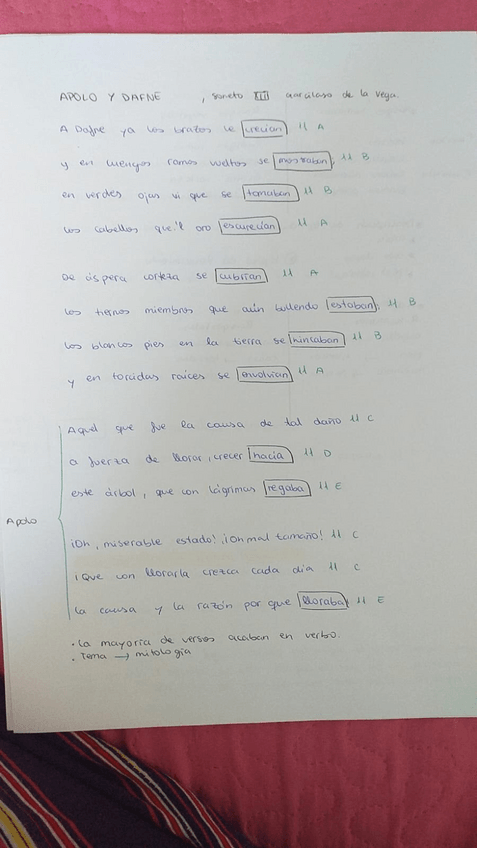 APOLO Y DAFNE , soneto XIII Garcilaso de la Vega.
A Dafne ya los brazos le crecían 11 A
y en luengos ramos vueltos se mostraban, 11 B
en verdes ojas vi que se tornaban 11 B
los cabellos que'l oro escurecían 11 A
De áspera corteza se cubrían 11 A
los tiernos miembros que aún bullendo estaban, 11 B
los blancos pies en la tierra se hincaban 11 B
y en torcidas raíces se envolvían 11 A
Aquel que fue la causa de tal daño 11 C
a fuerza de llorar, crecer hacía 11 D
este árbol, que con lágrimas regaba 11 E
Apolo
¡Oh, miserable estado! ¡Oh mal tamaño! 11 C
¡Que con llorarla crezca cada día 11 C
la causa y la razón por que lloraba! 11 E
· La mayoría de versos acaban en verbo.
· Tema → mitología